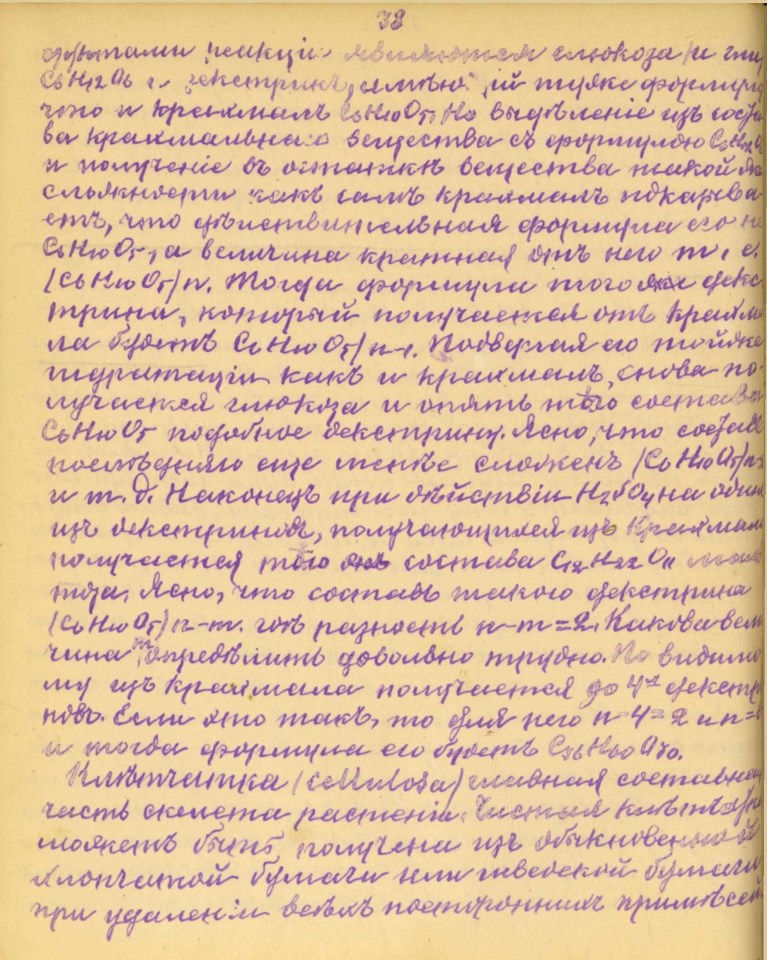 38
дуктами реакціи являются глюкоза и
C6H12O6 и декстринъ, имѣю ій туже формулу
что и крахмалъ C6H10O5. Но выдѣленіе изъ соста
ва крахмальнаго вещества съ формулою C6H12O
и полученіе въ остаткѣ вещества такой
какъ самъ крахмалъ пока
етъ, что дѣйствительная формула его не
C6H10O5, а величина кратная отъ него т. е.
(C6H10O5)n. Тогда формула того же декс
трина, который получается отъ крахма
ла будетъ C6H10O5)n-1. Подвергая его тойже
гидратаціи какъ и крахмалъ, снова по-
лучается глюкоза и опять тѣло состава
C6H10O5 подобное декстрину. Ясно, что составъ
послѣдняго еще менѣе сложенъ (C6H10O5)n-
и т. д. Наконецъ при дѣйствіи H2SO4 на одинъ
изъ декстриновъ, получающихся изъ крахмала
получается тѣло состава C12H22O11
тоза. Ясно, что составъ такого декстрина
(C6H10O5)n-m. гдѣ разность n-m=2. Какова вели
чина m, опредѣлить довольно трудно. По видимо
му изъ крахмала получается до 4хъ декстри
новъ. Если это такъ, то для него n-4=2 и n=6
и тогда формула его будетъ C36H60O30.
Клѣтчатка (cellulosa) главная составная
часть скелета растенія. Чистая клѣтчатка
можетъ быть получена изъ обыкновенной
хлопчатой бумаги или шведской бумаги
при удаленіи всѣхъ постороннихъ примѣсей